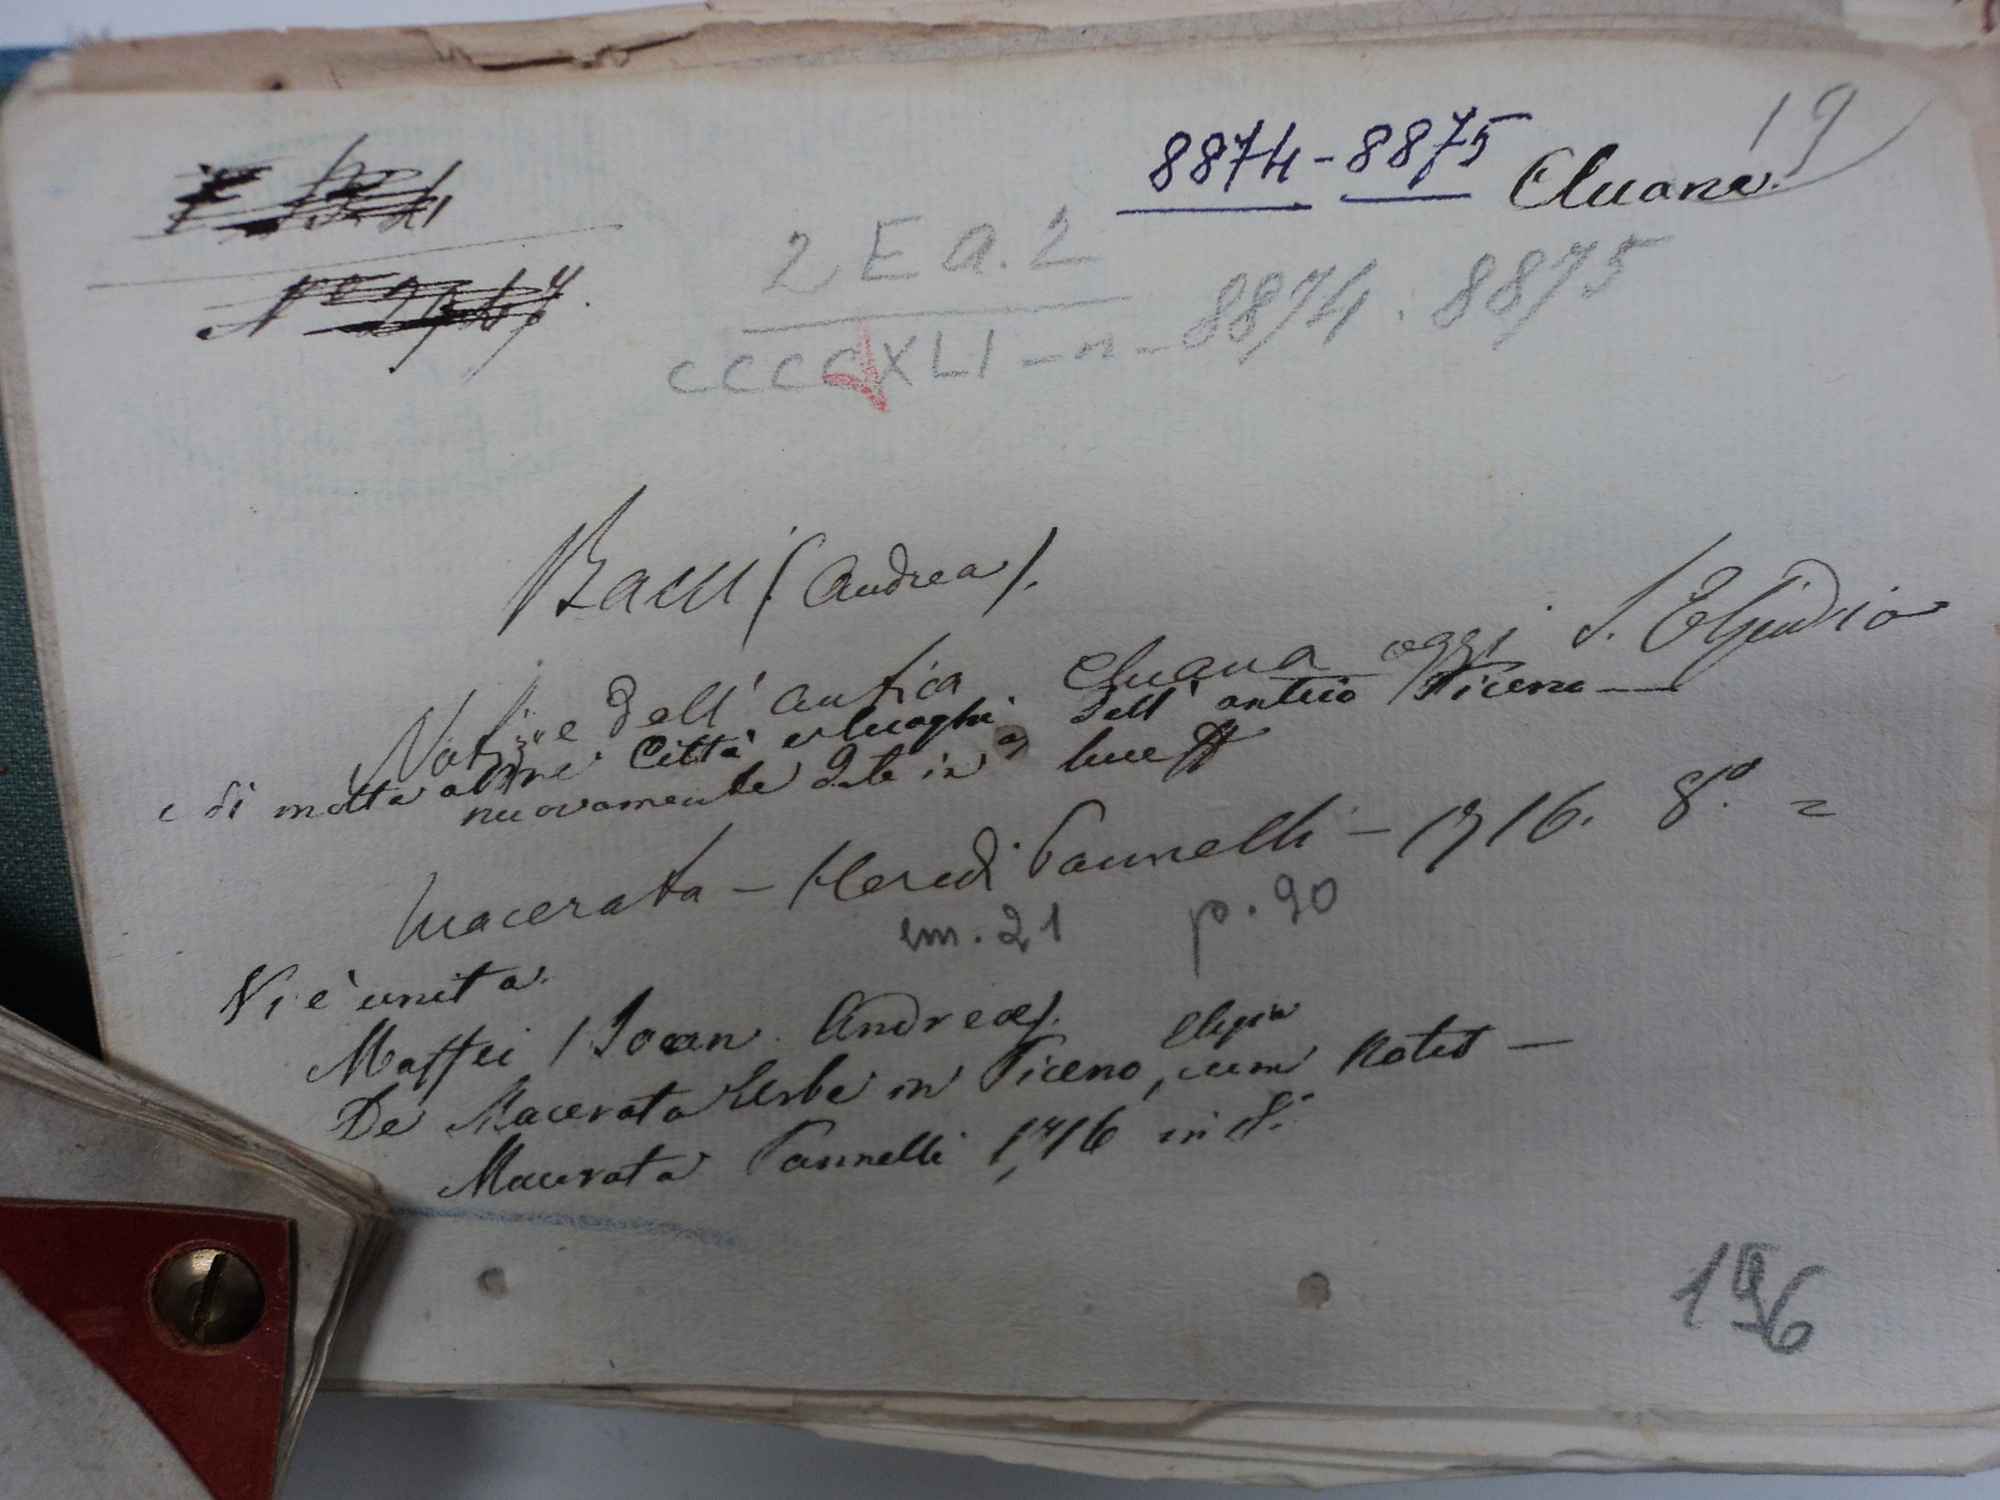 19
8874-8875 Cluana.
2 E a. 2
CCCCXLI - n - 8874. 8875
Bacci (Andrea).
Notizie dell' antica Cluana oggi S. Elpidio
e di molte altre Città e luoghi dell' antico Piceno —
nuovamente date in luce
Macerata - Heredi Pannelli - 1716. 8.° =
em. 21 p. 90
Vi è unita.
Maffei (Joan. Andreæ).
De Macerata Urbe in Piceno, elegia cum Notis —
Macerata Pannelli 1716 in 8.°
196